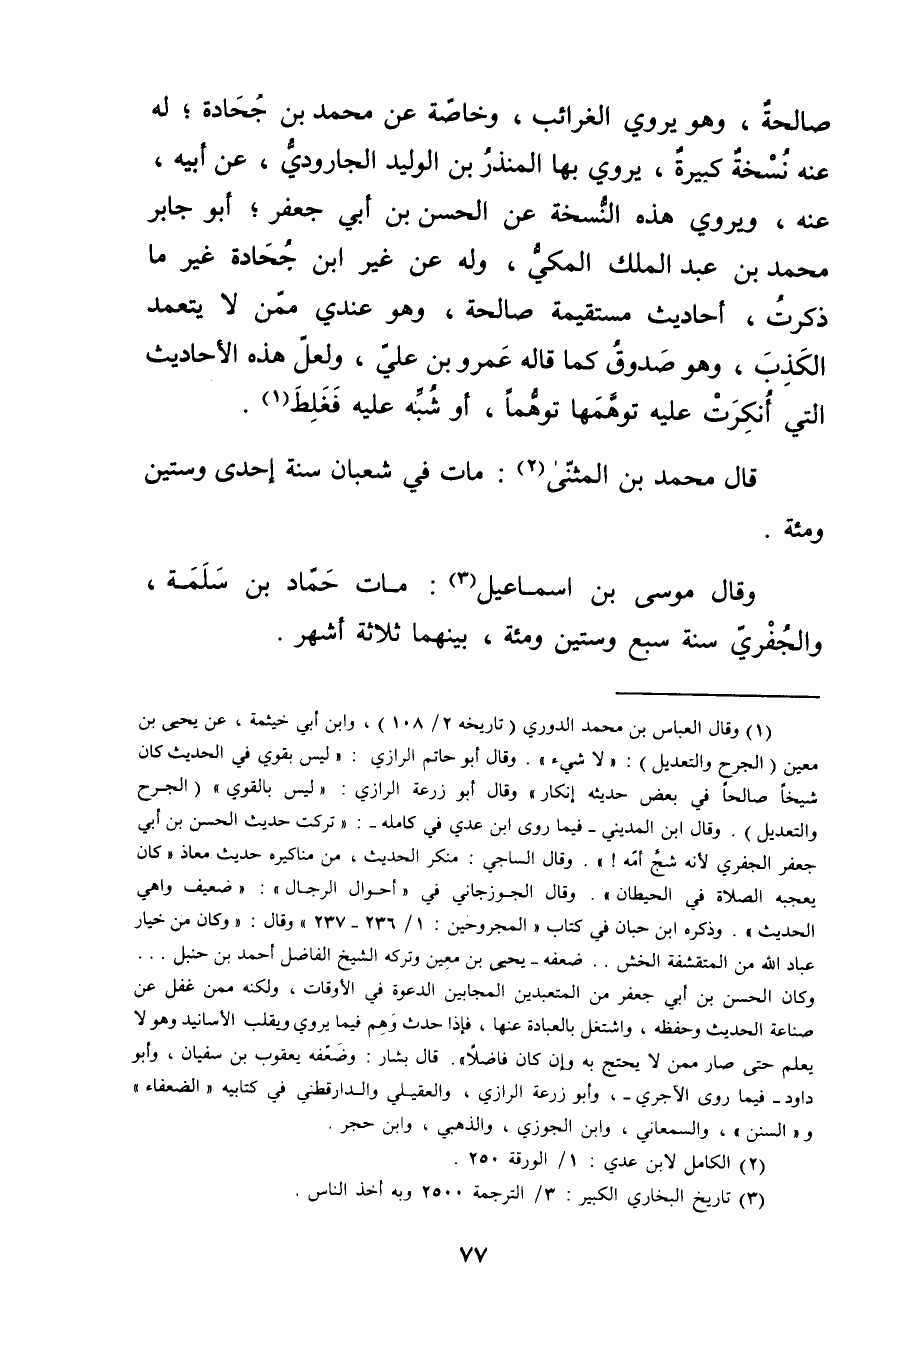 صالحةٌ ، وهو يروي الغرائب ، وخاصّة عن محمد بن جُحَادة ؛ له
عنه نُسْخةٌ كبيرةٌ ، يروي بها المنذرُ بن الوليد الجاروديُّ ، عن أبيه ،
عنه ، ويروي هذه النُّسخة عن الحسن بن أبي جعفر ؛ أبو جابر
محمد بن عبد الملك المكيُّ ، وله عن غير ابن جُحَادة غير ما
ذكرتُ ، أحاديث مستقيمة صالحة ، وهو عندي ممّن لا يتعمد
الكَذِبَ ، وهو صَدوقُ كما قاله عَمرو بن عليّ ، ولعلّ هذه الأحاديث
التي أُنكِرَتْ عليه توهَّمَها توهُّماً ، أو شُبِّه عليه فَغَلِطَ(١) .
قال محمد بن المثنّى(٢) : مات في شعبان سنة إحدى وستين
ومئة .
وقال موسى بن اسماعيل(٣) : مات حَمّاد بن سَلَمَة ،
والجُفْريّ سنة سبع وستين ومئة ، بينهما ثلاثة أشهر .
(١) وقال العباس بن محمد الدوري ( تاريخه ٢/ ١٠٨ ) ، وابن أبي خيثمة ، عن يحيى بن
معين ( الجرح والتعديل ) : « لا شيء » . وقال أبو حاتم الرازي : « ليس بقوي في الحديث كان
شيخاً صالحاً في بعض حديثه إنكار» وقال أبو زرعة الرازي : « ليس بالقوي » ( الجرح
والتعديل ) . وقال ابن المديني - فيما روى ابن عدي في كامله - : « تركت حديث الحسن بن أبي
جعفر الجفري لأنه شجَّ أمّه ! » . وقال الساجي : منكر الحديث ، من مناكيره حديث معاذ « كان
يعجبه الصلاة في الحيطان » . وقال الجوزجاني في « أحوال الرجال » : « ضعيف واهي
الحديث » . وذكره ابن حبان في كتاب « المجروحين : ١/ ٢٣٦ - ٢٣٧ » وقال : « وكان من خيار
عباد الله من المتقشفة الخش .. ضعفه - يحيى بن معين وتركه الشيخ الفاضل أحمد بن حنبل ...
وكان الحسن بن أبي جعفر من المتعبدين المجابين الدعوة في الأوقات ، ولكنه ممن غفل عن
صناعة الحديث وحفظه ، واشتغل بالعبادة عنها ، فإذا حدث وَهِم فيما يروي ويقلب الأسانيد وهو لا
يعلم حتى صار ممن لا يحتج به وإن كان فاضلًا». قال بشار : وضَعّفه يعقوب بن سفيان ، وأبو
داود - فيما روى الآجري - ، وأبو زرعة الرازي ، والعقيلي والدارقطني في كتابيه « الضعفاء »
و « السنن » ، والسمعاني ، وابن الجوزي ، والذهبي ، وابن حجر .
(٢) الكامل لابن عدي : ١/ الورقة ٢٥٠ .
(٣) تاريخ البخاري الكبير : ٣/ الترجمة ٢٥٠٠ وبه أخذ الناس .
٧٧